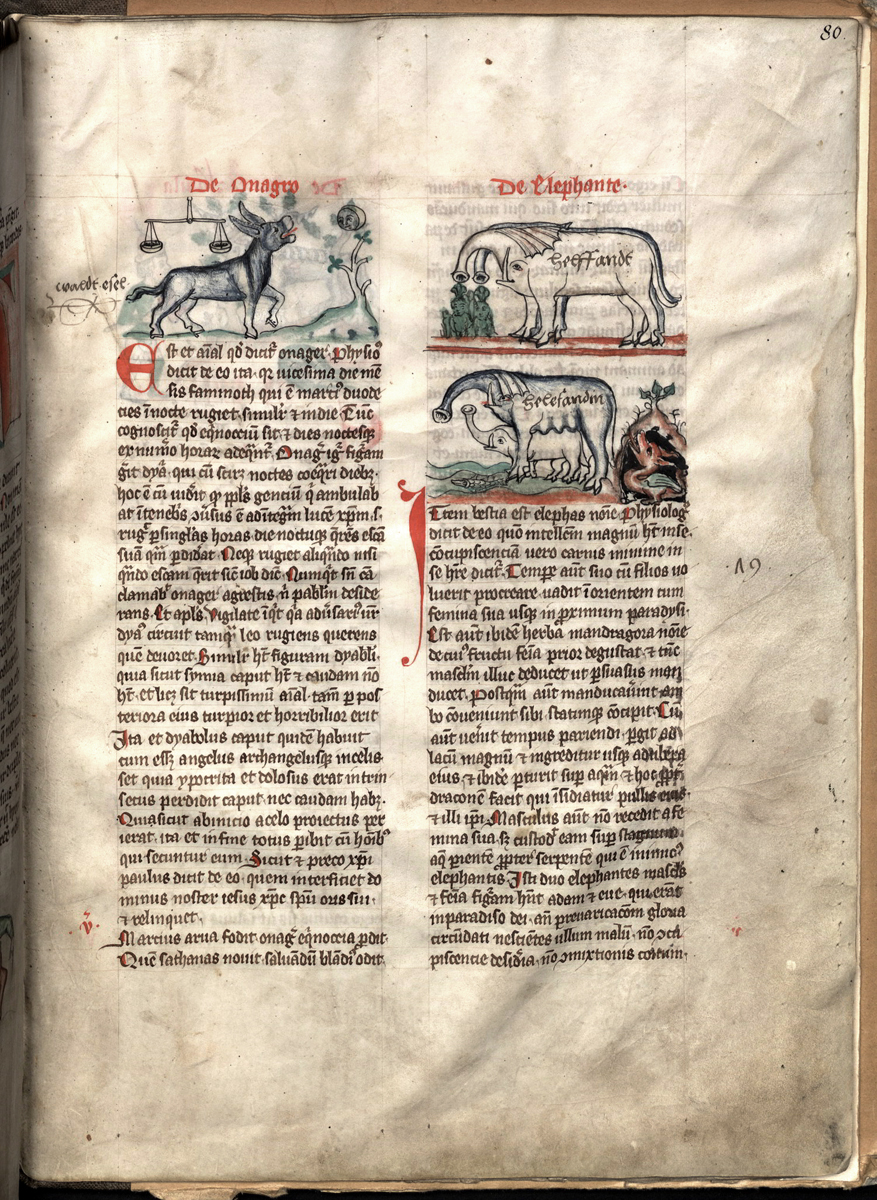 80.
De Onagro
waldt esel
Est et aīal qd dicit onager. Physioꝰ
dicit de eo ita. qꝛ uicesima die mē
sis fammoth qui ē marciꝰ duode
cies ī nocte rugiet. similr ⁊ in die. Tūc
cognoscit qd eq̄noccium sit. ⁊ dies noctesqꝫ
ex nūo horaꝝ adeqn̄t. Onagꝰ igꝰ figᵃm
gīt dya. qui cū scit noctes coeqri diebꝫ.
hoc ē cū uidit qꝫ ppls gencium qͥ ambulab
at ī tenebs
rugꝫ ꝑ singlas horas die noctuqꝫ qrēs escā
suā qm̄ ꝑdidat. Neqꝫ rugiet aliqn̄do nisi
qn̄do escam qrit sic iob dic. Nunqt
clamabᵗ onager agrestis. n̄ pablm deside
rans. Et apls. Vigilate īqt qa adūsariꝰ ur̄
dyaꝰ circuit tamqꝫ leo rugiens querens
quē deuoret. Similr ht figuram dyabli.
quia sicut symia caput ht ⁊ caudam nō
ht. et licꝫ sit turpissimū aīal. tam̄ ꝑ pos
teriora eius turpior et horribilior erit
Ita et dyabolus caput quidē habuit
cum essꝫ angelus archangelusqꝫ in celis.
set quia ypocrita et dolosus erat intrin
secus perdidit caput. nec caudam habꝫ.
Quia sicut ab inicio a celo proiectus per
ierat. ita et in fine totus ꝑibit cū hoībꝰ
qui secuntur eum. Sicut ⁊ preco xp̄i
paulus dicit de eo. quem interficiet do
minus noster iesus xp̄c spū oris sui.
⁊ relinquet.
v̊.
Marcius arua fodit. onagꝰ eq̄noccia ꝓdit.
Quē sathanas nouit. saluandū blandꝰ odit.
De Elephante.
Helffandt
Helefandin
Item bestia est elephas noīe. Physiologꝰ
dicit de eo quō intellcm magnū ht in se.
cōcupiscenciā uero carnis minime in
se hr̄e dicitͬ. Tempe aūt suo cū filios uo
luerit procreare uadit ī orientem cum
femina sua usqꝫ in proximum paradysi.
Est aūt ibidē herba mandragora noīe
de cuiꝰ fructu feīa prior degustat. ⁊ tūc
masclm illuc deducet ut ꝑsuasus
ducet. Postqm̄ aūt manducauerint am
bo cōueniunt sibi. statimqꝫ cōcipit. Cū
aūt uenit tempus pariendi. pergit ad
lacū magnū ⁊ ingreditur usqꝫ ad ubera
eius. ⁊ ibidē ꝑturit sup aqm̄. ⁊ hoc ꝓpt
draconē facit qui īsidiatur pullis eius.
⁊ illi ip̄i. Masculus aūt nō recedit a fe
mina sua. sꝫ custodᵗ eam sup stagnum
aq̄ pariente ꝓpter serpentē qui ē inimicꝰ
elephantis. Isti duo elephantes mascls
⁊ feīa figᵃm hn̄t adam ⁊ eue. qui erāt
in paradiso dei. an̄ preuaricacōm gloria
circūdati. nescientes ullum malū. nō ↄcu
piscencie desidia. nō ↄmixtionis coitum.
19